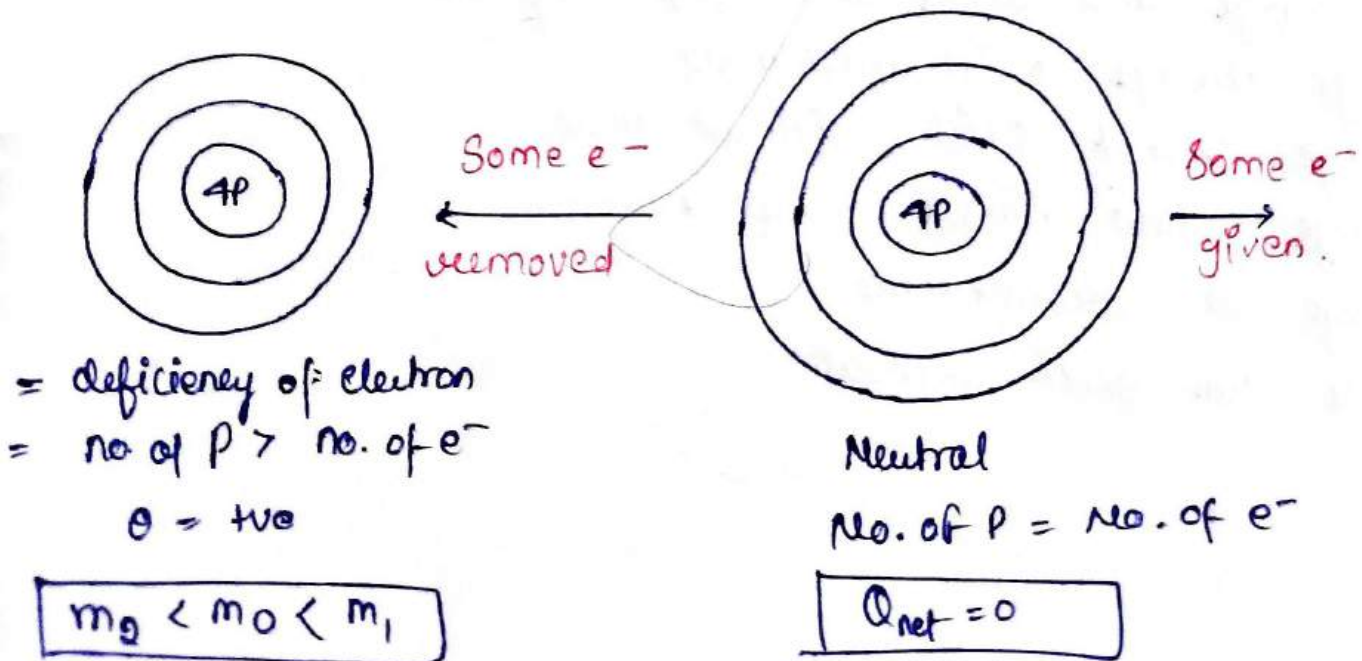 4P
Some e-
removed
4P
Some e-
given.
= deficieney of electron
= no of P > no. of e-
Q = +ve
m2 < m0 < m1
Neutral
No. of P = No. of e-
Qnet = 0